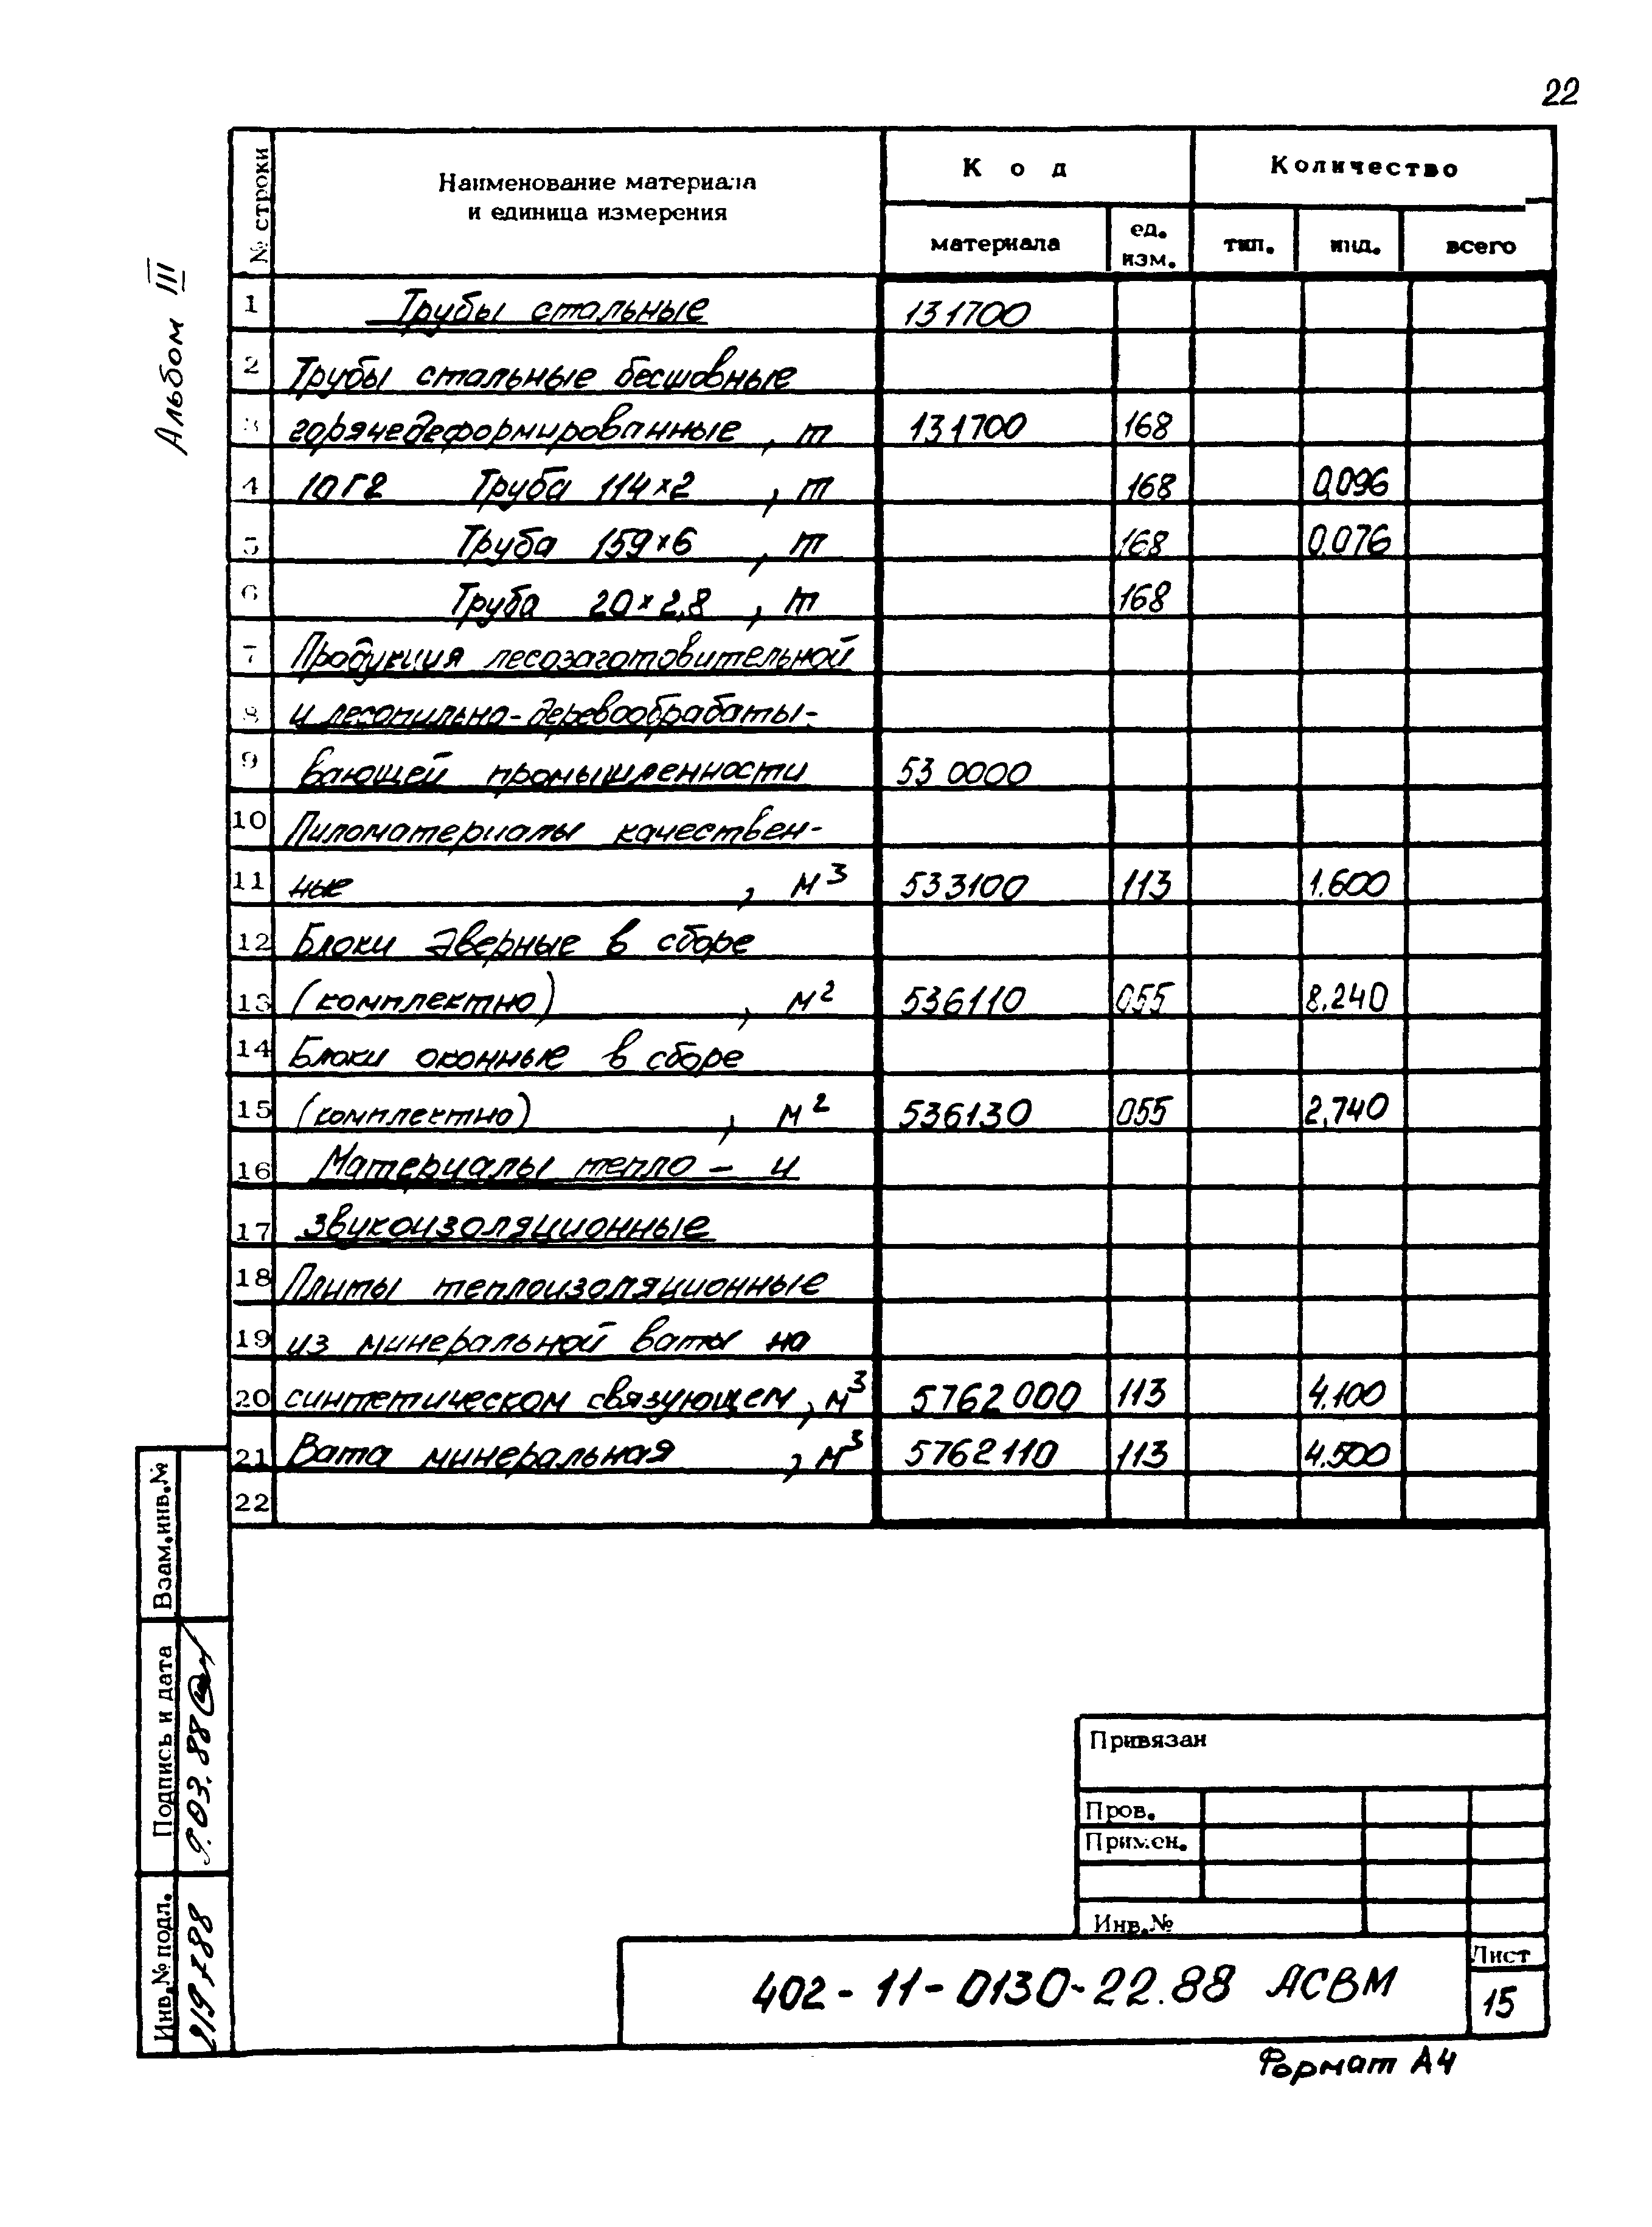 22
Альбом III
№ строки
Наименование материала
и единица измерения
Код
Количество
материала
ед.
изм.
тип.
инд.
всего
1 Трубы стальные 131700
2 Трубы стальные бесшовные
3 горячедеформированные, т 131700 168
4 10Г2 Труба 114×2, т 168 0,096
5 Труба 159×6, т 168 0.076
6 Труба 20×2,8, т 168
7 Продукция лесозаготовительной
8 и лесопильно-деревообрабаты-
9 вающей промышленности 530000
10 Пиломатериалы качествен-
11 ные, м3 533100 113 1.600
12 Блоки дверные в сборе
13 (комплектно), м2 536110 055 8.240
14 Блоки оконные в сборе
15 (комплектно), м2 536130 055 2,740
16 Материалы тепло - и
17 звукоизоляционные
18 Плиты теплоизоляционные
19 из минеральной ваты на
20 синтетическом связующем, м3 5762000 113 4.100
21 Вата минеральная, м3 5762110 113 4.500
22
Взам.инв.№
Подпись и дата
9.03.88
Инв.№ подл.
Привязан
Пров.
Примен.
Инв.№
402-11-0130-22.88 АСВМ
Лист
15
Формат А4